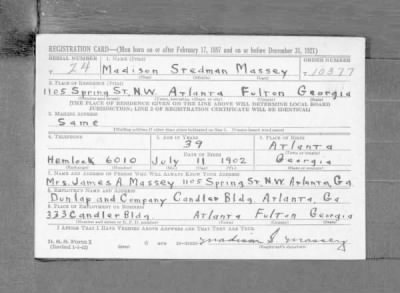 REGISTRATION CARD—(Men born on or after February 17, 1897 and on or before December 31, 1921)
SERIAL NUMBER 1. NAME (Print) ORDER NUMBER
T 24 Madison Stedman Massey T 10377
(First) (Middle) (Last)
2. PLACE OF RESIDENCE (Print)
1105 Spring St. N.W. Atlanta Fulton Georgia
(Number and street) (Town, township, village, or city) (County) (State)
[THE PLACE OF RESIDENCE GIVEN ON THE LINE ABOVE WILL DETERMINE LOCAL BOARD
JURISDICTION; LINE 2 OF REGISTRATION CERTIFICATE WILL BE IDENTICAL]
3. MAILING ADDRESS
Same
[Mailing address if other than place indicated on line 2. If same insert word same]
4. TELEPHONE 5. AGE IN YEARS 6. PLACE OF BIRTH
39 Atlanta
DATE OF BIRTH (Town or county)
Hemlock 6010 July 11 1902 Georgia
(Exchange) (Number) (Mo.) (Day) (Yr.) (State or country)
7. NAME AND ADDRESS OF PERSON WHO WILL ALWAYS KNOW YOUR ADDRESS
Mrs. James A. Massey 1105 Spring St. N.W. Atlanta, Ga
8. EMPLOYER'S NAME AND ADDRESS
Dunlap and Company Candler Bldg. Atlanta, Ga
9. PLACE OF EMPLOYMENT OR BUSINESS
333 Candler Bldg Atlanta Fulton Georgia
(Number and street or R. F. D. number) (Town) (County) (State)
I AFFIRM THAT I HAVE VERIFIED ABOVE ANSWERS AND THAT THEY ARE TRUE.
D. S. S. FORM 1
(Revised 1-1-42) (over) Madison S. Massey
(Registrant's signature)